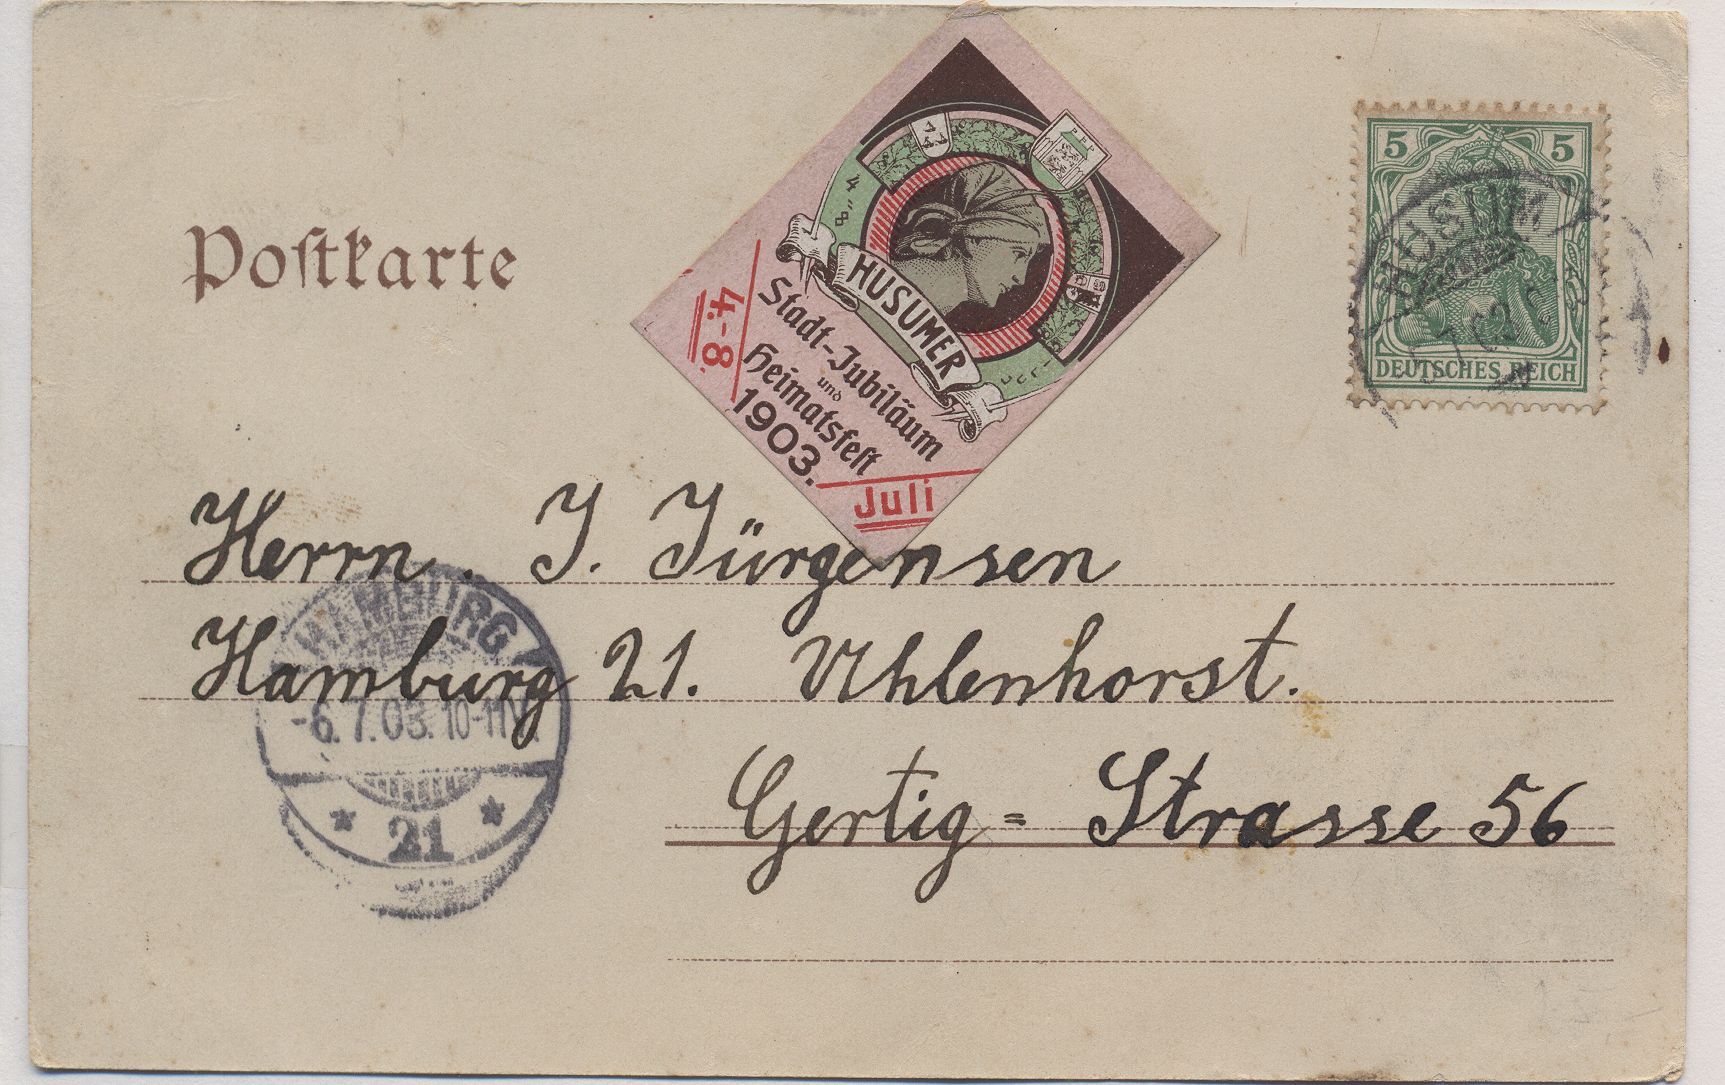 Postkarte
HUSUMER
Stadt-Jubiläum
und
Heimatsfest
1903.
4.-8.
Juli
5 5
HUSUM
DEUTSCHES REICH
Herrn. J. Jürgensen
Hamburg 21. Uhlenhorst.
Gertig = Strasse 56
HAMBURG
-6.7.03. 10-11V.
* 21 *